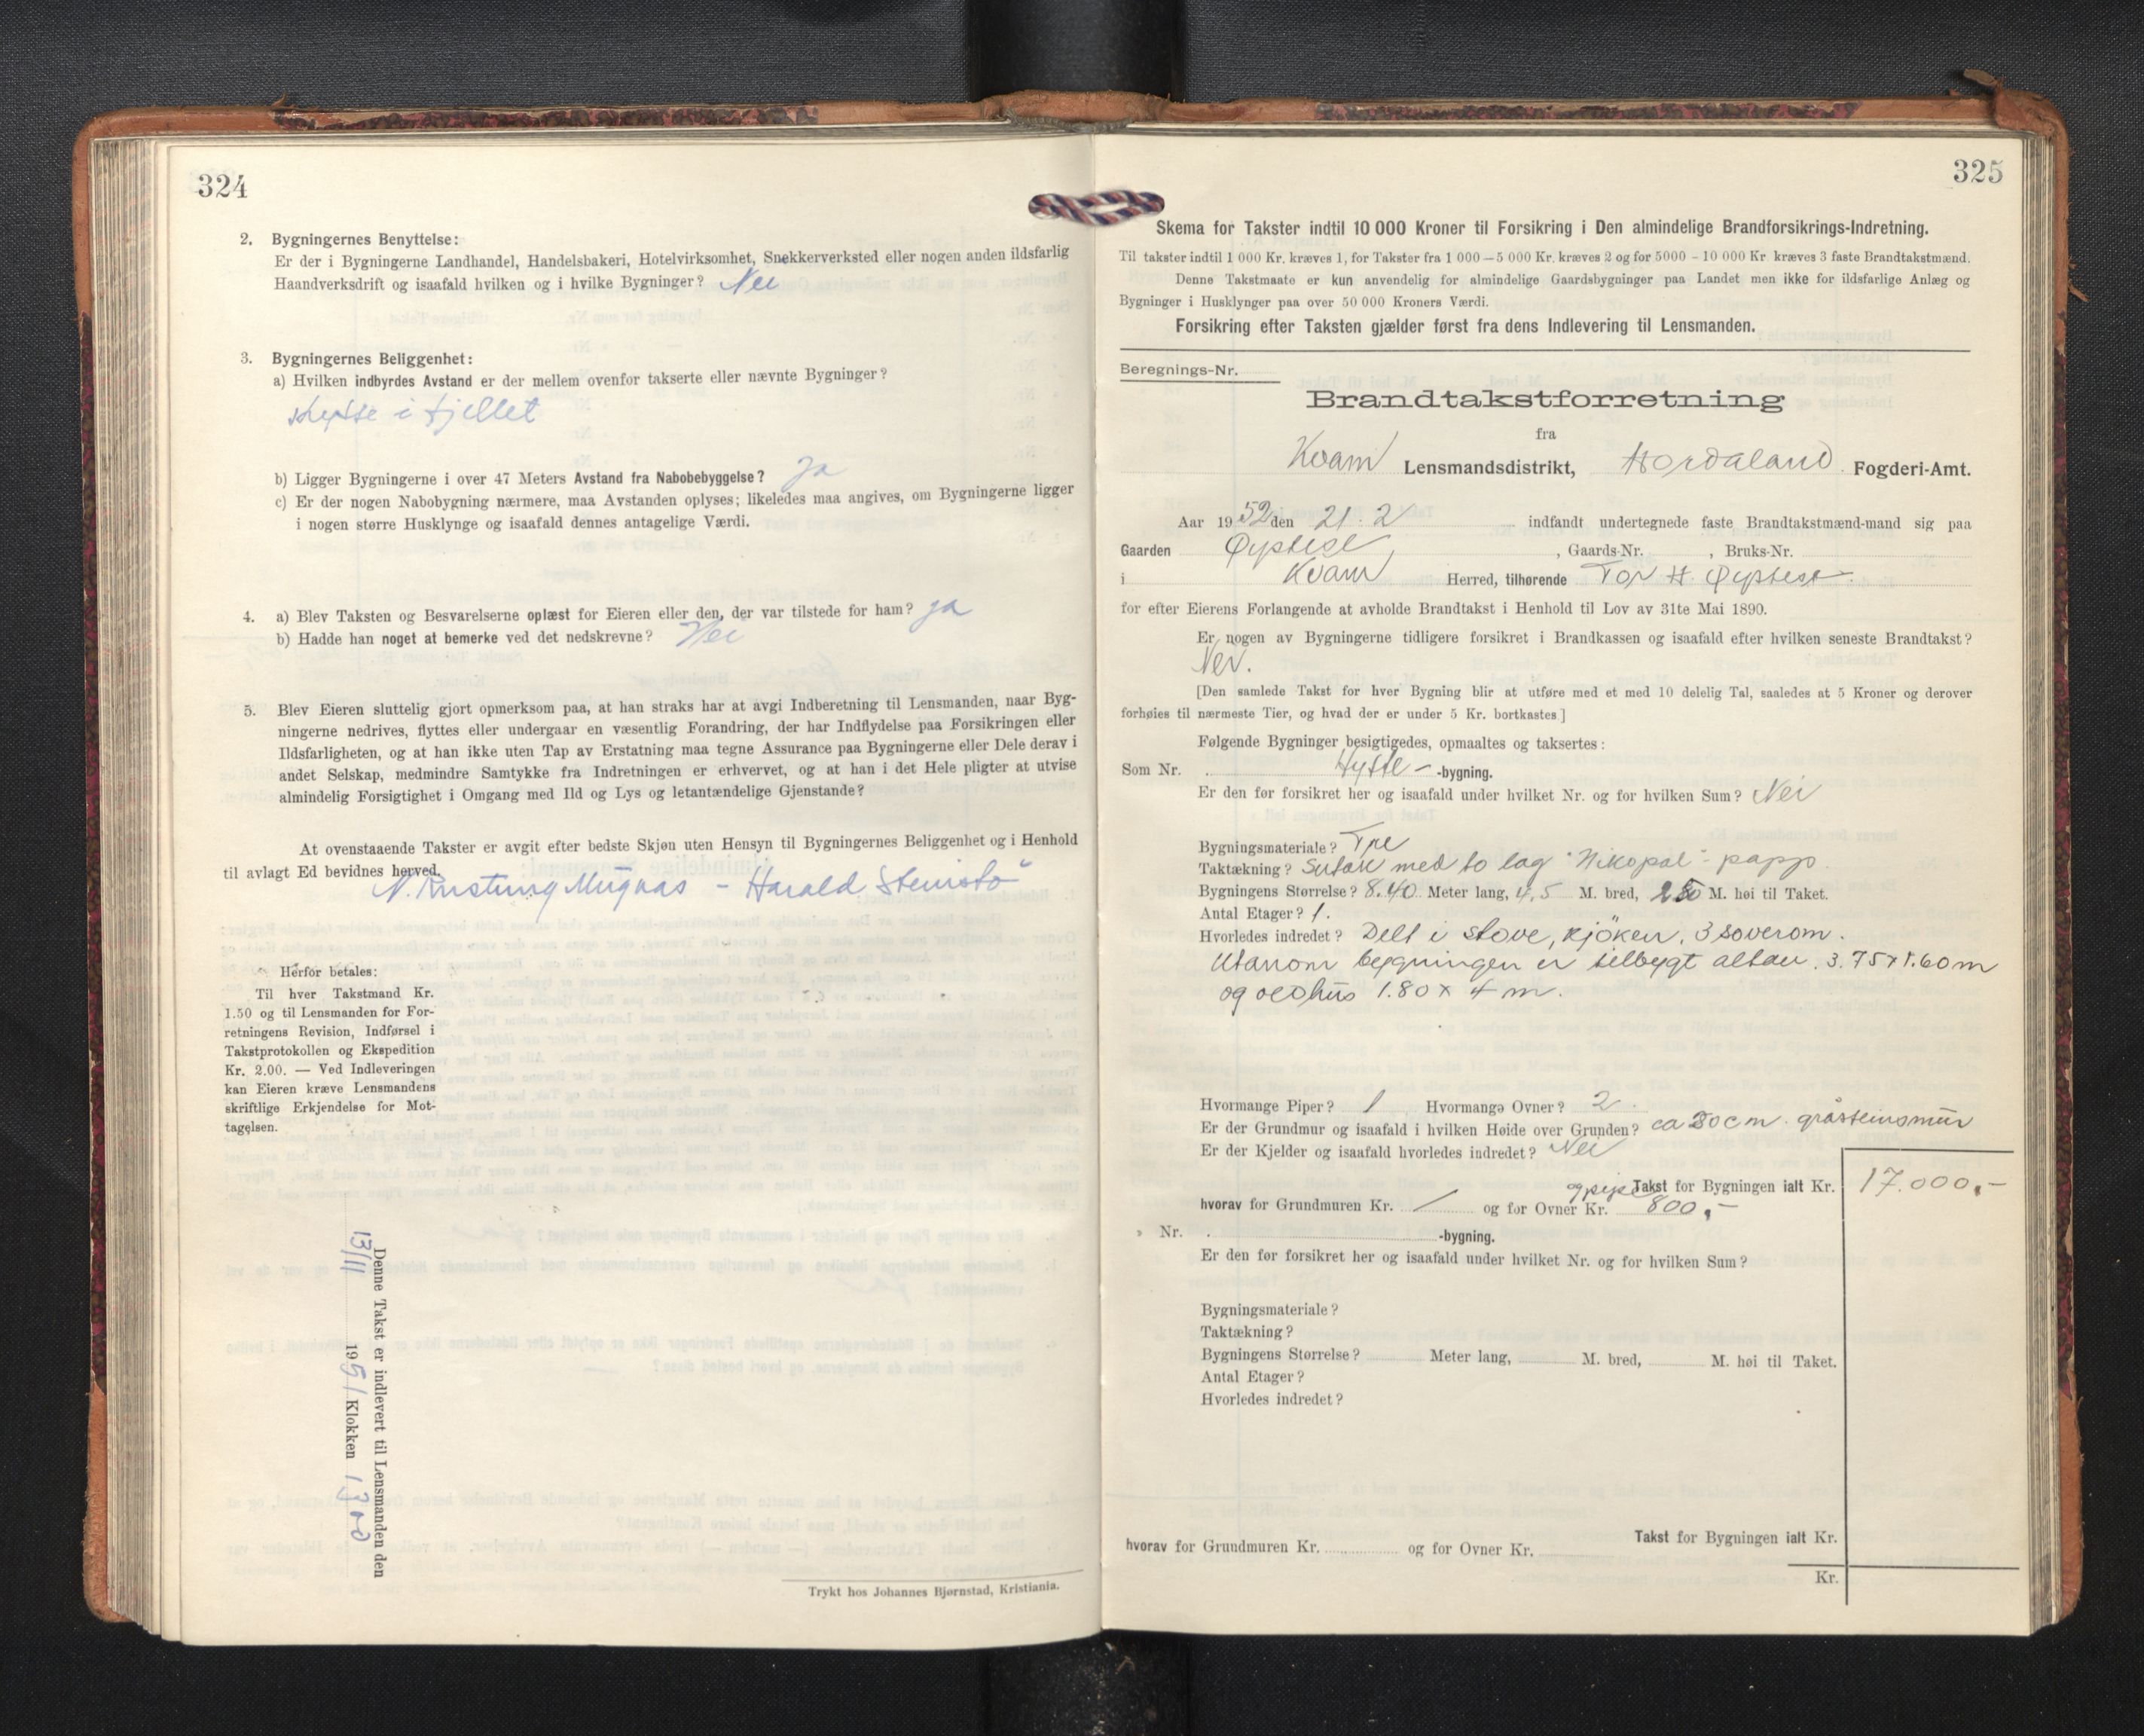 324
2. Bygningernes Benyttelse:
Er der i Bygningerne Landhandel, Handelsbakeri, Hotelvirksomhet, Snekkerverksted eller nogen anden ildsfarlig
Haandverksdrift og isaafald hvilken og i hvilke Bygninger? Nei
3. Bygningernes Beliggenhet:
a) Hvilken indbyrdes Avstand er der mellem ovenfor takserte eller nævnte Bygninger?
Hytte i fjellet
b) Ligger Bygningerne i over 47 Meters Avstand fra Nabobebyggelse? Ja
c) Er der nogen Nabobygning nærmere, maa Avstanden oplyses; likeledes maa angives, om Bygningerne ligger
i nogen større Husklynge og isaafald dennes antagelige Værdi.
4. a) Blev Taksten og Besvarelserne oplæst for Eieren eller den, der var tilstede for ham? ja
b) Hadde han noget at bemerke ved det nedskrevne? Nei
5. Blev Eieren sluttelig gjort opmerksom paa, at han straks har at avgi Indberetning til Lensmanden, naar Byg-
ningerne nedrives, flyttes eller undergaar en væsentlig Forandring, der har Indflydelse paa Forsikringen eller
Ildsfarligheten, og at han ikke uten Tap av Erstatning maa tegne Assurance paa Bygningerne eller Dele derav i
andet Selskap, medmindre Samtykke fra Indretningen er erhvervet, og at han i det Hele pligter at utvise
almindelig Forsigtighet i Omgang med Ild og Lys og letantændelige Gjenstande?
At ovenstaaende Takster er avgit efter bedste Skjøn uten Hensyn til Bygningernes Beliggenhet og i Henhold
til avlagt Ed bevidnes herved.
N. Mugnas - Harald Steinstö
Herfor betales:
Til hver Takstmand Kr.
1.50 og til Lensmanden for For-
retningens Revision, Indførsel i
Takstprotokollen og Ekspedition
Kr. 2.00. — Ved Indleveringen
kan Eieren kræve Lensmandens
skriftlige Erkjendelse for Mot-
tagelsen.
Denne Takst er indlevert til Lensmanden den
13/11 1951 Klokken 13 00
Trykt hos Johannes Bjørnstad, Kristiania.
325
Skema for Takster indtil 10 000 Kroner til Forsikring i Den almindelige Brandforsikrings-Indretning.
Til takster indtil 1 000 Kr. kræves 1, for Takster fra 1 000 – 5 000 Kr. kræves 2 og for 5000 – 10 000 Kr. kræves 3 faste Brandtakstmænd.
Denne Takstmaate er kun anvendelig for almindelige Gaardsbygninger paa Landet men ikke for ildsfarlige Anlæg og
Bygninger i Husklynger paa over 50 000 Kroners Værdi.
Forsikring efter Taksten gjælder først fra dens Indlevering til Lensmanden.
Beregnings-Nr.
Brandtakstforretning
fra
Kvam Lensmandsdistrikt, Hordaland Fogderi-Amt.
Aar 1952 den 21. 2 indfandt undertegnede faste Brandtakstmænd-mand sig paa
Gaarden Øystese, , Gaards-Nr. , Bruks-Nr.
i Kvam Herred, tilhørende Tor H. Øystese.
for efter Eierens Forlangende at avholde Brandtakst i Henhold til Lov av 31te Mai 1890.
Er nogen av Bygningerne tidligere forsikret i Brandkassen og isaafald efter hvilken seneste Brandtakst?
Nei.
[Den samlede Takst for hver Bygning blir at utføre med et med 10 delelig Tal, saaledes at 5 Kroner og derover
forhøies til nærmeste Tier, og hvad der er under 5 Kr. bortkastes]
Følgende Bygninger besigtigedes, opmaaltes og taksertes:
Som Nr. Hytte- -bygning.
Er den før forsikret her og isaafald under hvilket Nr. og for hvilken Sum? Nei
Bygningsmateriale? Tre
Taktækning? Sutak med to lag "Nikopal"-papp.
Bygningens Størrelse? 8.40 Meter lang, 4,5 M. bred, 2.50 M. høi til Taket.
Antal Etager? 1.
Hvorledes indredet? Delt i stove, kjöken, 3 soverom.
Utanom bygningen er tilbygt altan. 3.75 x 1.60 m
og vedhus 1.80 x 4 m.
Hvormange Piper? 1 Hvormange Ovner? 2.
Er der Grundmur og isaafald i hvilken Høide over Grunden? ca 20 cm. gråsteinsmur
Er der Kjelder og isaafald hvorledes indredet? Nei
og pipe Takst for Bygningen ialt Kr. 17.000,-
hvorav for Grundmuren Kr. / og for Ovner Kr. 800,-
" Nr. -bygning.
Er den før forsikret her og isaafald under hvilket Nr. og for hvilken Sum?
Bygningsmateriale?
Taktækning?
Bygningens Størrelse? Meter lang, M. bred, M. høi til Taket.
Antal Etager?
Hvorledes indredet?
Takst for Bygningen ialt Kr.
hvorav for Grundmuren Kr. og for Ovner Kr.
Kr.